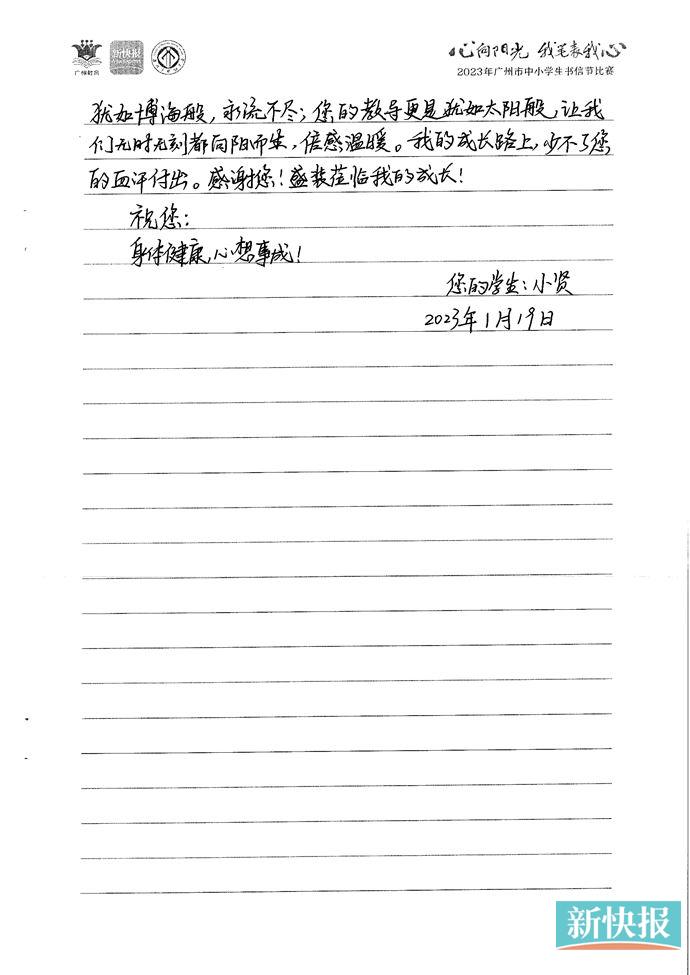 广州邮局
新快报
心向阳光 我笔表我心
2023年广州市中小学生书信节比赛
犹如博海般，永流不尽；您的教导更是犹如太阳般，让我
们无时无刻都向阳而生，倍感温暖。我的成长路上，少不了您
的血汗付出。感谢您！盛装莅临我的成长！
祝您：
身体健康，心想事成！
您的学生：小贤
2023年1月19日
新快报